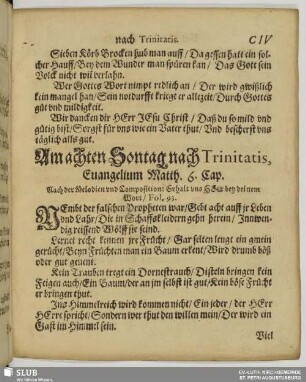 nach Trinitatis. CIV
Sieben Körb Brocken hub man auff / Da gessen hatt ein sol-
cher Hauff / Bey dem Wunder man spüren kan / Das Gott sein
Volck nicht wil verlahn.
Wer Gottes Wort nimpt redlich an / Der wird gwißlich
kein mangel han / Sein notdurfft kriegt er allezeit / Durch Gottes
güt vnd mildigkeit.
Wir dancken dir HErr JEsu Christ / Daß du so mild vnd
gütig bist / Sorgst für vns wie ein Vater thut / Vnd bescherst vns
täglich alls gut.
Am achten Sontag nach Trinitatis,
Euangelium Matth. 6. Cap.
Nach der Melodien vnd Composition: Erhalt vns HErr bey deinem
Wort / Fol. 93.
NEmbt der falschen Propheten war / Gebt acht auff jr Leben
vnd Lahr / Die in Schaffskleidern gehn herein / Innwen-
dig reissend Wölff sie seind.
Lernet recht kennen jre Frücht / Gar selten lengt ein gmein
gerücht / Beyn Früchten man ein Baum erkent / Wird drumb böß
oder gut genent.
Kein Trauben tregt ein Dornestrauch / Disteln bringen kein
Feigen auch / Ein Baum / der an jm selbst ist gut / Kein böse Frücht
er bringen thut.
Ins Himmelreich wird kommen nicht / Ein jeder / der HErr
HErr spricht / Sondern wer thut den willen mein / Der wird ein
Gast im Himmel sein.
Viel
SLUB
Wir führen Wissen.
EV.-LUTH. KIRCHGEMEINDE
ST. PETRI AUGUSTUSBURG